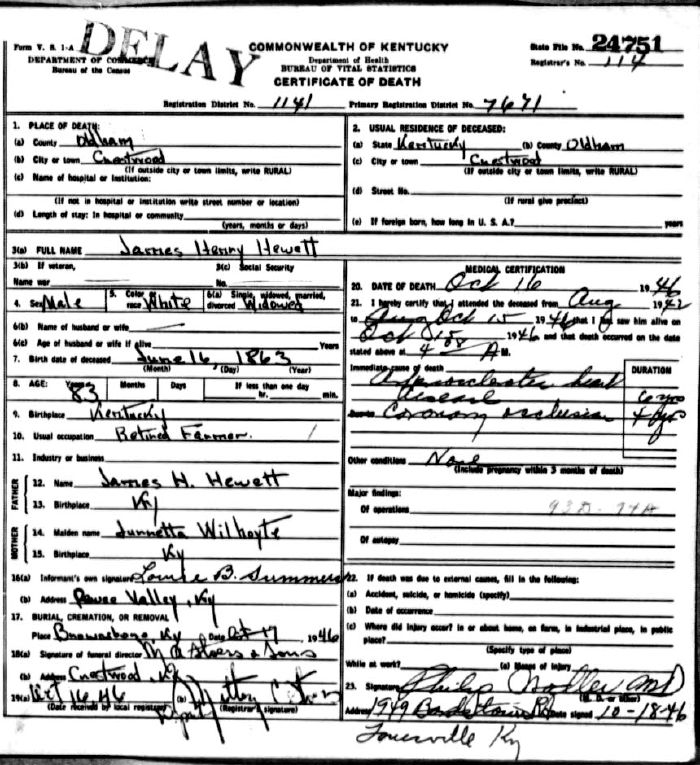 DELAY
Form V. S. 1-A
DEPARTMENT OF COMMERCE
Bureau of the Census
COMMONWEALTH OF KENTUCKY
Department of Health
BUREAU OF VITAL STATISTICS
CERTIFICATE OF DEATH
State File No. 24751
Registrar's No. 114
Registration District No. 1141 Primary Registration District No. 7671
1. PLACE OF DEATH:
(a) County Oldham
(b) City or town Crestwood
(If outside city or town limits, write RURAL)
(c) Name of hospital or institution:
(If not in hospital or institution write street number or location)
(d) Length of stay: In hospital or community
(years, months or days)
2. USUAL RESIDENCE OF DECEASED:
(a) State Kentucky (b) County Oldham
(c) City or town Crestwood
(If outside city or town limits, write RURAL)
(d) Street No.
(If rural give precinct)
(e) If foreign born, how long in U. S. A.? years
3(a) FULL NAME James Henry Hewett
3(b) If veteran, 3(c) Social Security
Name war No.
4. Sex Male 5. Color or race White 6(a) Single, widowed, married, divorced Widowed
6(b) Name of husband or wife
6(c) Age of husband or wife if alive Years
7. Birth date of deceased June 16, 1863
(Month) (Day) (Year)
8. AGE: Years Months Days If less than one day
83 hr. min.
9. Birthplace Kentucky
10. Usual occupation Retired Farmer
11. Industry or business
FATHER
12. Name James H. Hewett
13. Birthplace Ky
MOTHER
14. Maiden name Wilhoyte
15. Birthplace Ky
16(a) Informant's own signature Louise B. Summers
(b) Address Pewee Valley, Ky
17. BURIAL, CREMATION, OR REMOVAL
Place Ky Date Oct 17, 1946
18(a) Signature of funeral director & Sons
(b) Address Crestwood, Ky
19(a) Oct 16 46 (b)
(Date received by local registrar) (Registrar's signature)
MEDICAL CERTIFICATION
20. DATE OF DEATH Oct 16 1946
21. I hereby certify that I attended the deceased from Aug 1942
to Oct 15 1946 that I last saw him alive on
Oct 15 1946 and that death occurred on the date
stated above at 4 A M.
Immediate cause of death DURATION
heart
disease
Due to Coronary occlusion
Other conditions None
(Include pregnancy within 3 months of death)
Major findings:
Of operations
Of autopsy
22. If death was due to external causes, fill in the following:
(a) Accident, suicide, or homicide (specify)
(b) Date of occurrence
(c) Where did injury occur? in or about home, on farm, in industrial place, in public
place?
(Specify type of place)
While at work? (e) Means of injury
23. Signature Philip MD
(M. D. or other)
Address 1949 Bardstown Rd Date signed 10-18-46
Louisville Ky